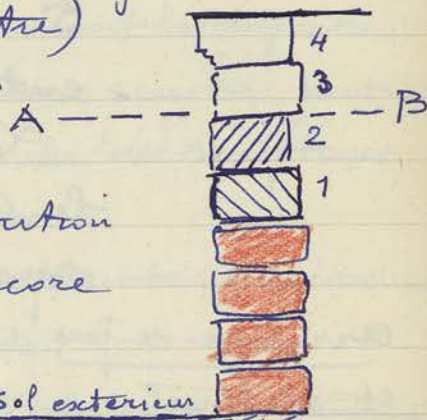 tre)
4
3
A B
2
1
cution
core
sol extérieur